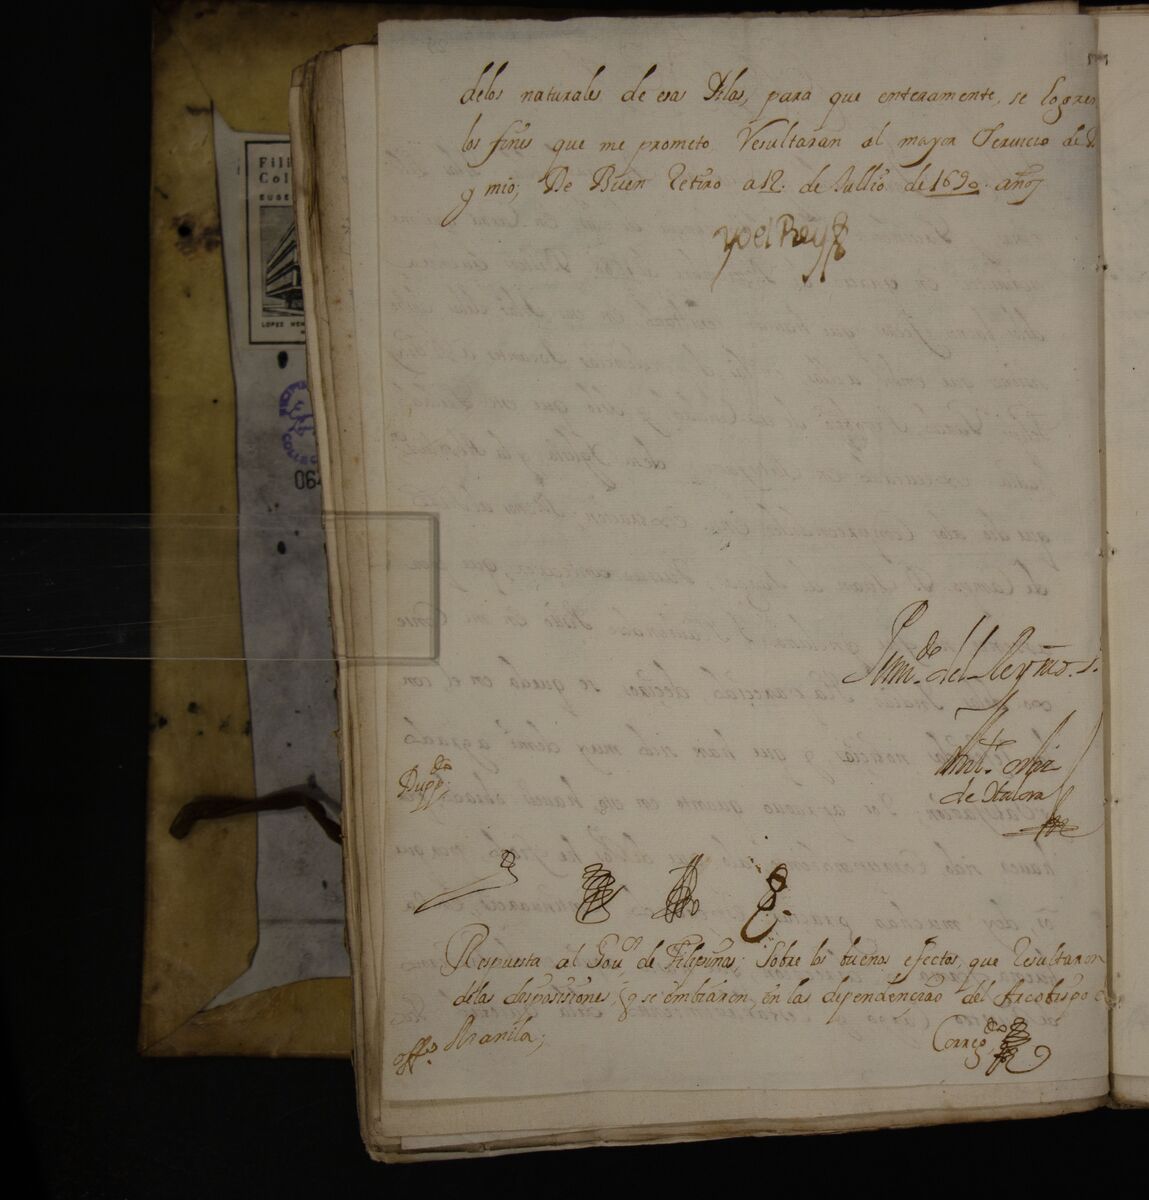 delos naturales de esas Yslas, para que enteramente, se logren
los fines que me prometo Resultaran al mayor Seruicio de D
y mio; De Buen Retiro a 12. de Jullio de 1690. años
yo el Rey
Por m.do del Rey nro. s.r
Ant.o Ortiz
de Otalora
Dupp.do
Respuesta al Gou.or de Filipinas; Sobre los buenos efectos, que Resultaron
delas disposisiones, q se embiaron, en las dependencias del Arcobispo
off.o Manila;
Correg.do
Fili
Col
EUGE
LOPEZ MEM
COLLEC
064